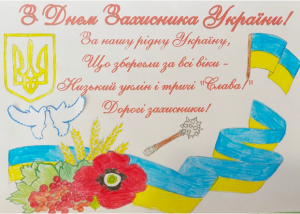 З Днем Захисника України!
За нашу рідну Україну,
Що зберегли за всі віки -
Низький уклін і тричі "Слава!"
Дорогі захисники!